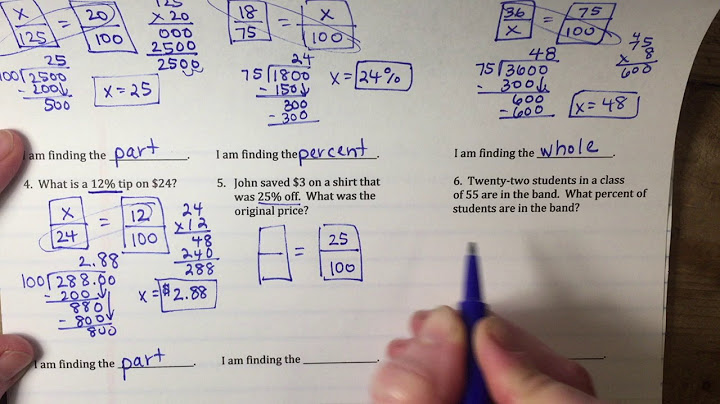 x/125 = 20/100
125
x 20
000
2500
2500
25
100 2500
- 200
500
x = 25
18/75 = x/100
24
75 1800
- 150
300
- 300
x = 24%
36/x = 75/100
48
75 3600
- 300
600
- 600
4
75
x 8
600
x = 48
I am finding the part.
I am finding the percent.
I am finding the whole.
4. What is a 12% tip on $24?
x/24 = 12/100
24
x12
48
240
288
2.88
100 288.00
- 200
880
- 800
800
x = $2.88
I am finding the part.
5. John saved $3 on a shirt that
was 25% off. What was the
original price?
= 25/100
I am finding the
6. Twenty-two students in a class
of 55 are in the band. What percent of
students are in the band?